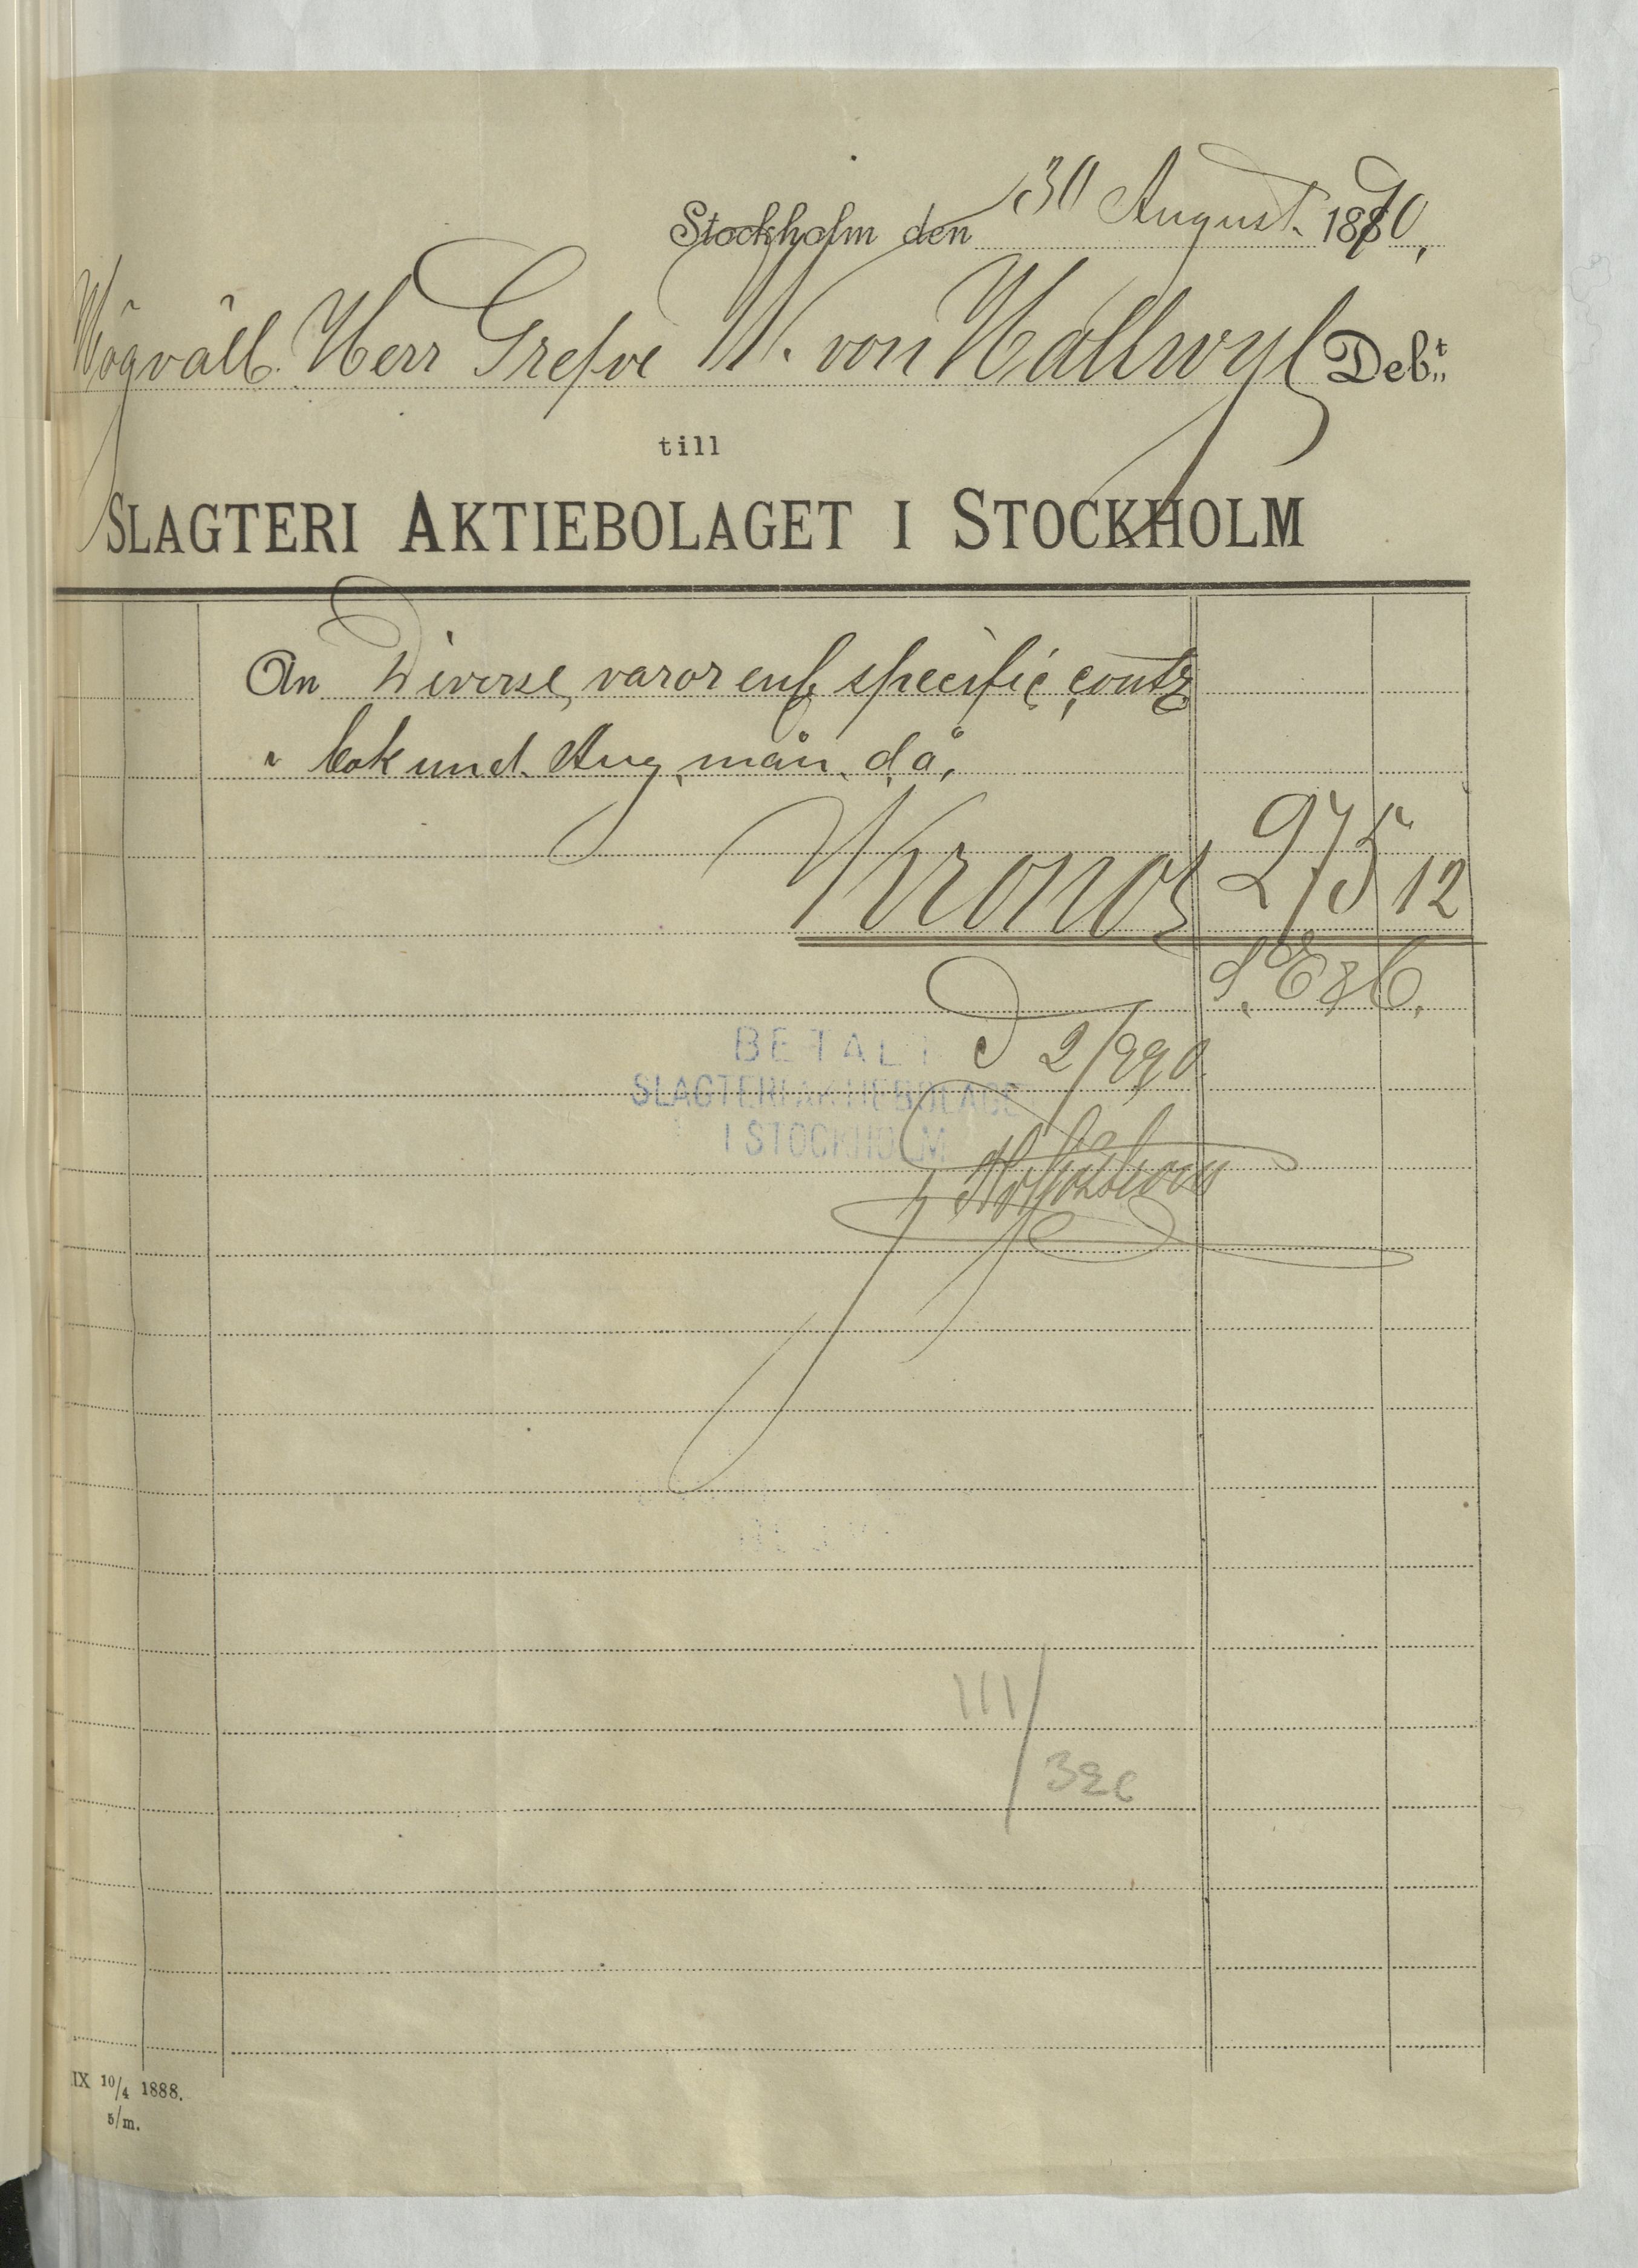 Stockholm den 30 August. 1890.
Högväll. Herr Grefve W. von Hallwyl Deb:t
till
SLAGTERI AKTIEBOLAGET I STOCKHOLM
An Diverse varor enl. specific. contr
bok und. Aug. mån. d.å.
Kronor 275 12
S. E. & O.
BETALT d 2/9 90.
SLAGTERIAKTIEBOLAGET
I STOCKHOLM
III/326
IX 10/4 1888.
5/m.